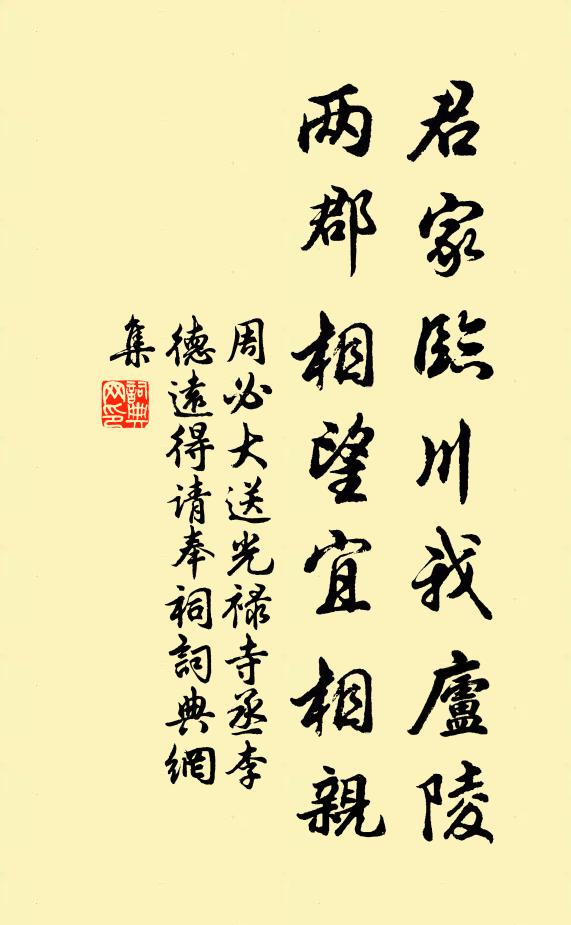 君家臨川我廬陵
两郡相望宜相親
周必大送光禄寺丞李
德遠得请奉祠詞典網
集
詞典網印